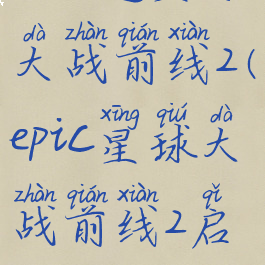 dà zhàn qián xiàn
大战前线2(
xīng qiú dà
epic星球大
zhàn qián xiàn qǐ
战前线2启